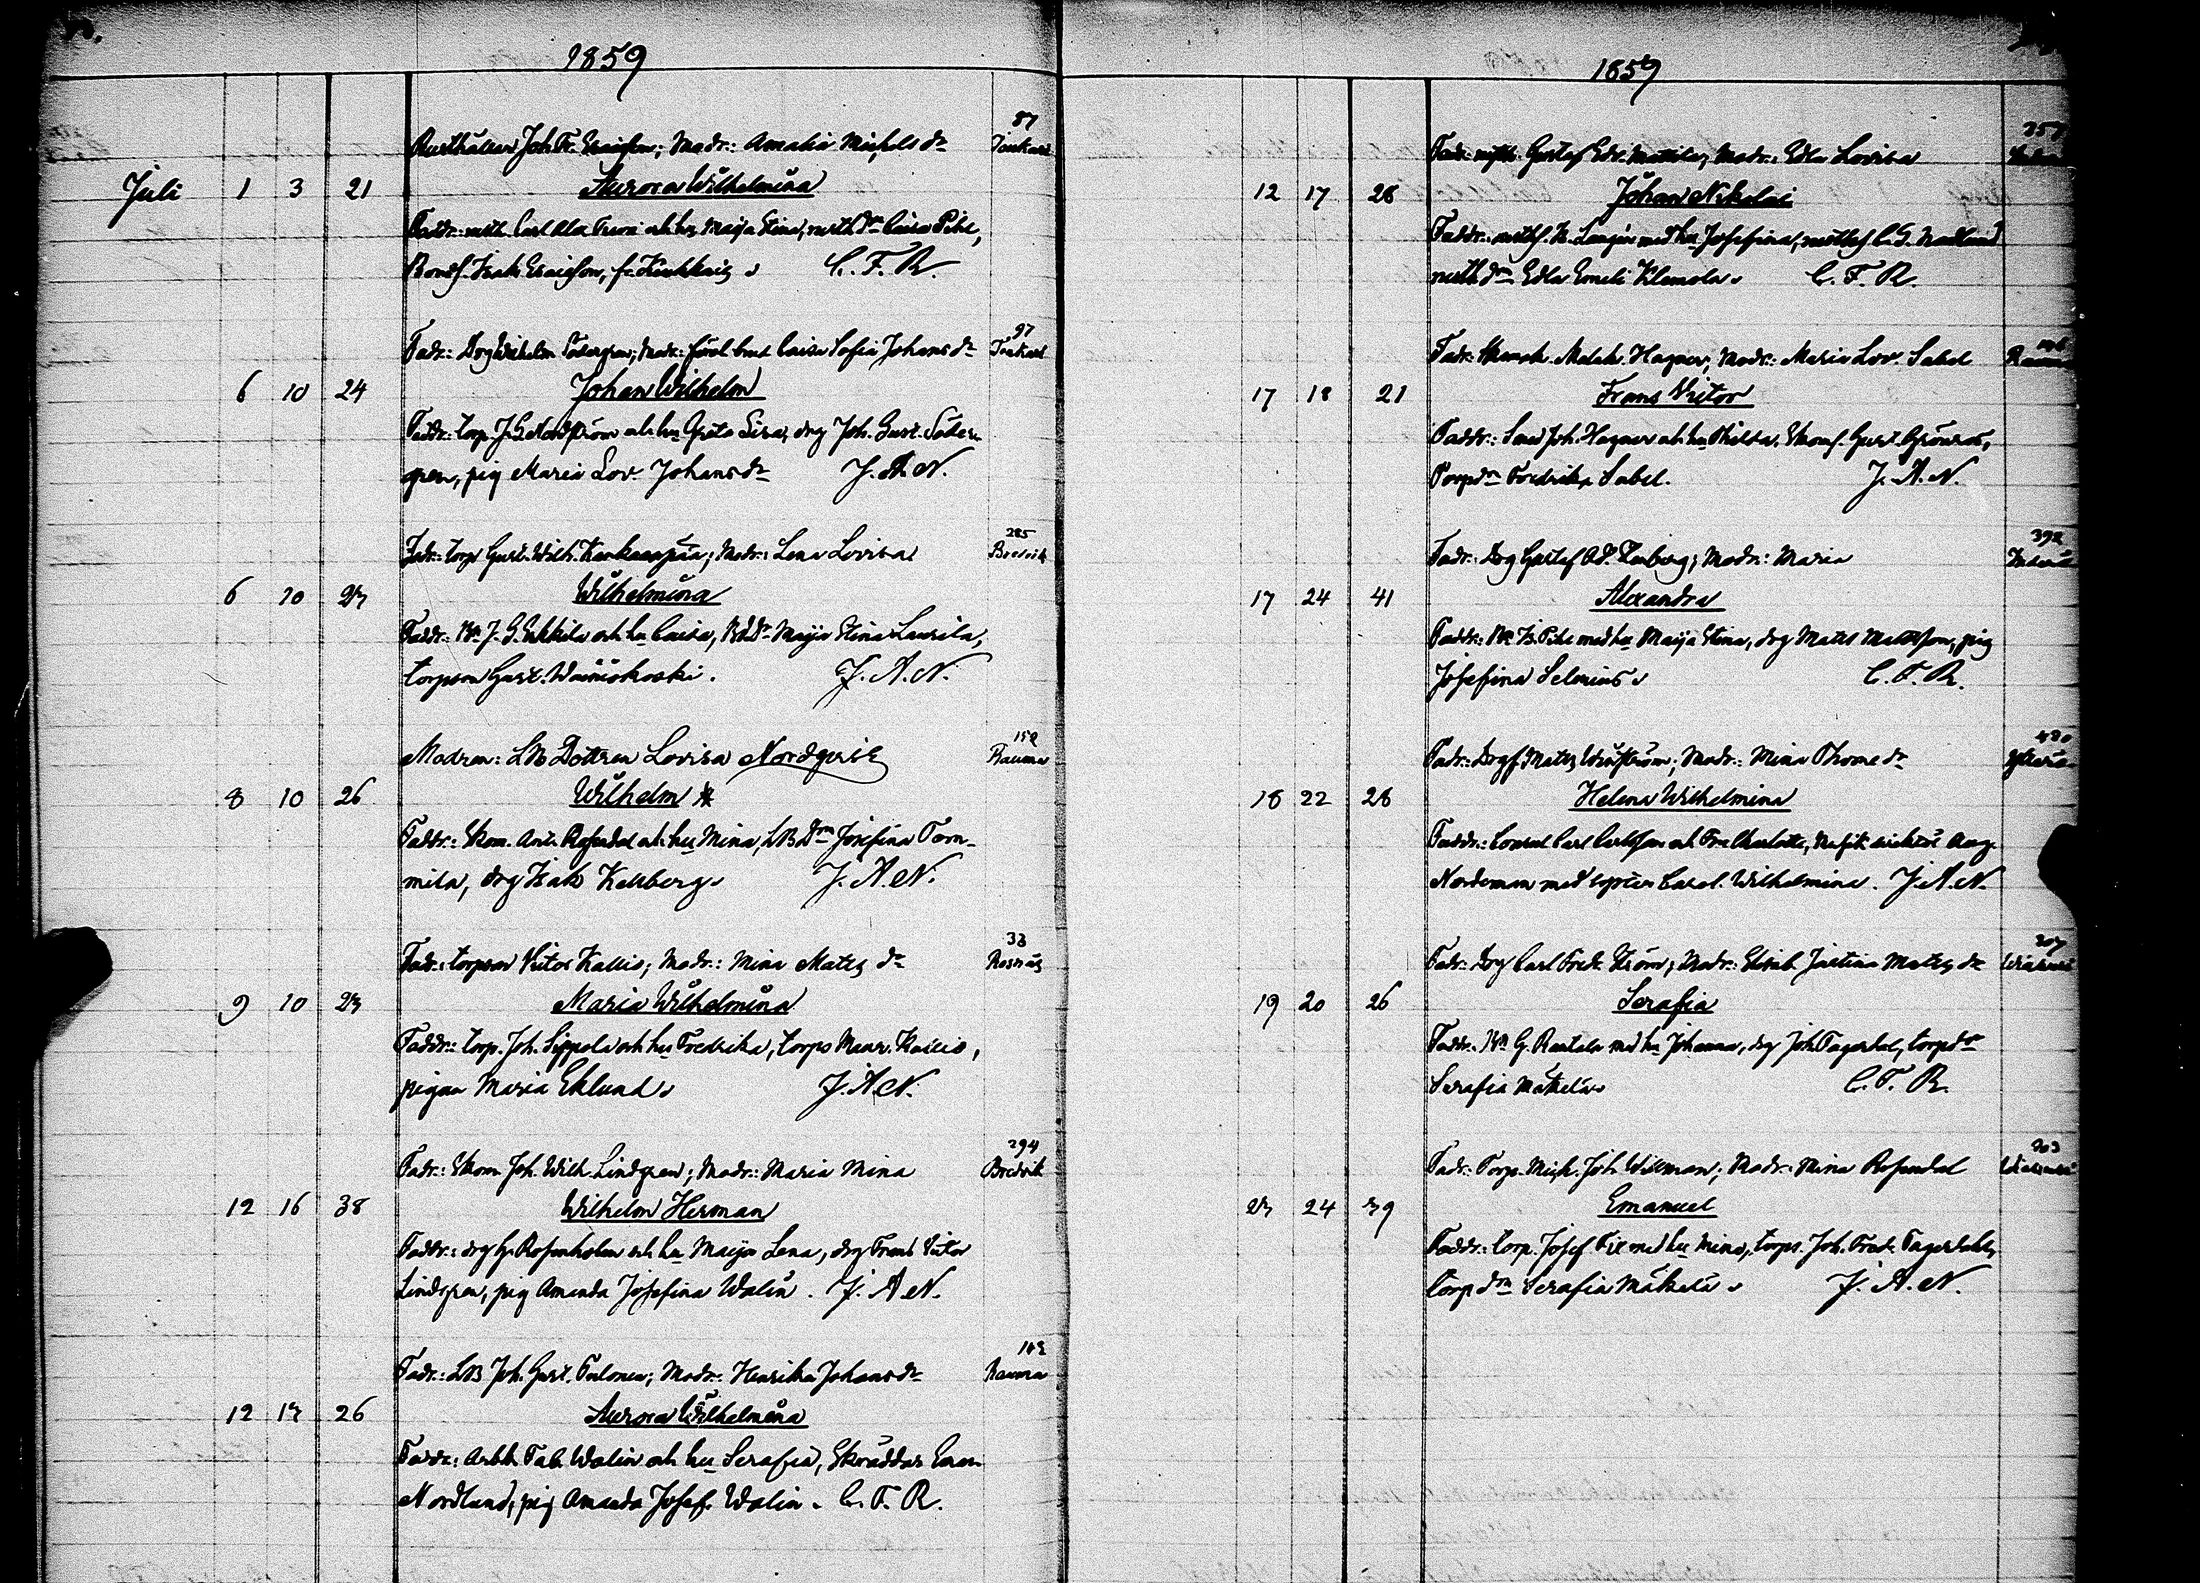 1859
87
Rusthållar Joh. Fr. Ericsson; Modr: Amalia Michelsdr
Juli 1 3 21 Aurora Wilhelmina
Faddr: rusth. Carl och hu Maija Stina, rusth dn Caisa Pihl,
Bonds. Isak Ericsson, fr. C. F. R.
97
Fadr: Drg Wilhelm Södergren; Modr: Caisa Sofia Johansdr
6 10 24 Johan Wilhelm
Faddr: torp. J. G. och hu Greta Lisa, drg Joh. Gust. Söder
gren, pig Maria Lov. Johansdr J. A. N.
285
Fadr: torp Gust. Wilh. Kankaanpää; Modr: Lena Lovisa Bredvik
6 10 27 Wilhelmina
Faddr: Bn J. G. Erkkila och hu Caisa, Maija Stina Laurila,
torpson Gust. Wäiniökoski. J. A. N.
152
Modren: LB Dottren Lovisa Nordqvist Rauma
8 10 26 Wilhelm
Faddr: Skom. Ant. Rosendal och hu Mina, LB Dtrn Josefina Torn-
mila, drg Isak Kellberg J. A. N.
33
Fadr: torpson Victor Kallio; Modr: Mina Matts dr Rosnäs
9 10 27 Maria Wilhelmina
Faddr: torp. Joh. Sippola och hu Fredrika, torps Maur. Kallio,
pigan Maria Eklund J. A. N.
294
Fadr: Skom Joh. Wilh. Lindgren; Modr: Maria Mina Bredvik
12 16 38 Wilhelm Herman
Faddr: drg G. Rosenholm och hu Maija Lena, drg Frans Victor
Lindgren, pig Amanda Josefina Walin. J. A. N.
Fadr: LB Joh. Gust. Tulonen; Modr: Henrika Johansdr Rauma
12 17 26 Aurora Wilhelmina
Faddr: Arbk. Fab. Walin och hu Serafia, Skräddar
Nordlund, pig Amanda Josef. Walin. C. F. R.
1859
357
Fadr: rusth. Gustaf Edv. Mattila; Modr: Edla Lovisa
12 17 28 Johan Nikolai
Faddr: rusth. K. Langén med hu Josefina, rusths C. G. Nordlund
rusth drn Edla Emeli Klemola C. F. R.
146
Fadr: Skomak. Malak. Hagner; Modr: Maria Lov. Sabel Rauma
17 18 21 Frans Victor
Faddr: Smed Joh. Hagner och hu Skoms. Gust. Grönroos,
Torpdrn Fredrika Sabel. J. A. N.
392
Fadr: Drg Gustaf Ad. Modr: Maria
17 24 41 Alexandra
Faddr: Bn Is. Pihl med hu Maija Stina, drg Matts Mattsson, pig
Josefina Selenius C. F. R.
480
Fadr: Drgf. Matts Winström; Modr: Mina Thomedr
18 22 28 Helena Wilhelmina
Faddr: Consul Carl Carlsson och Fru Charlotte, Musik direktör Aug.
Nordeman med syster Carol. Wilhelmina. J. A. N.
207
Fadr: Drg Carl Fredr. Ström; Modr: Elisab. Justina Matts dr
19 20 26 Serafia
Faddr: Bn G. Rantala med hu Johanna, drg Joh. Fagerdal, torpdr
Serafia Mäkelä C. F. R.
203
Fadr: Torp. Mich. Joh. Willman; Modr: Mina Rosendal
23 24 39 Emanuel
Faddr: torp. Josef med hu Mina, torps. Joh. Fredr. Fagerdahl,
torp drn Serafia Mäkelä J. A. N.